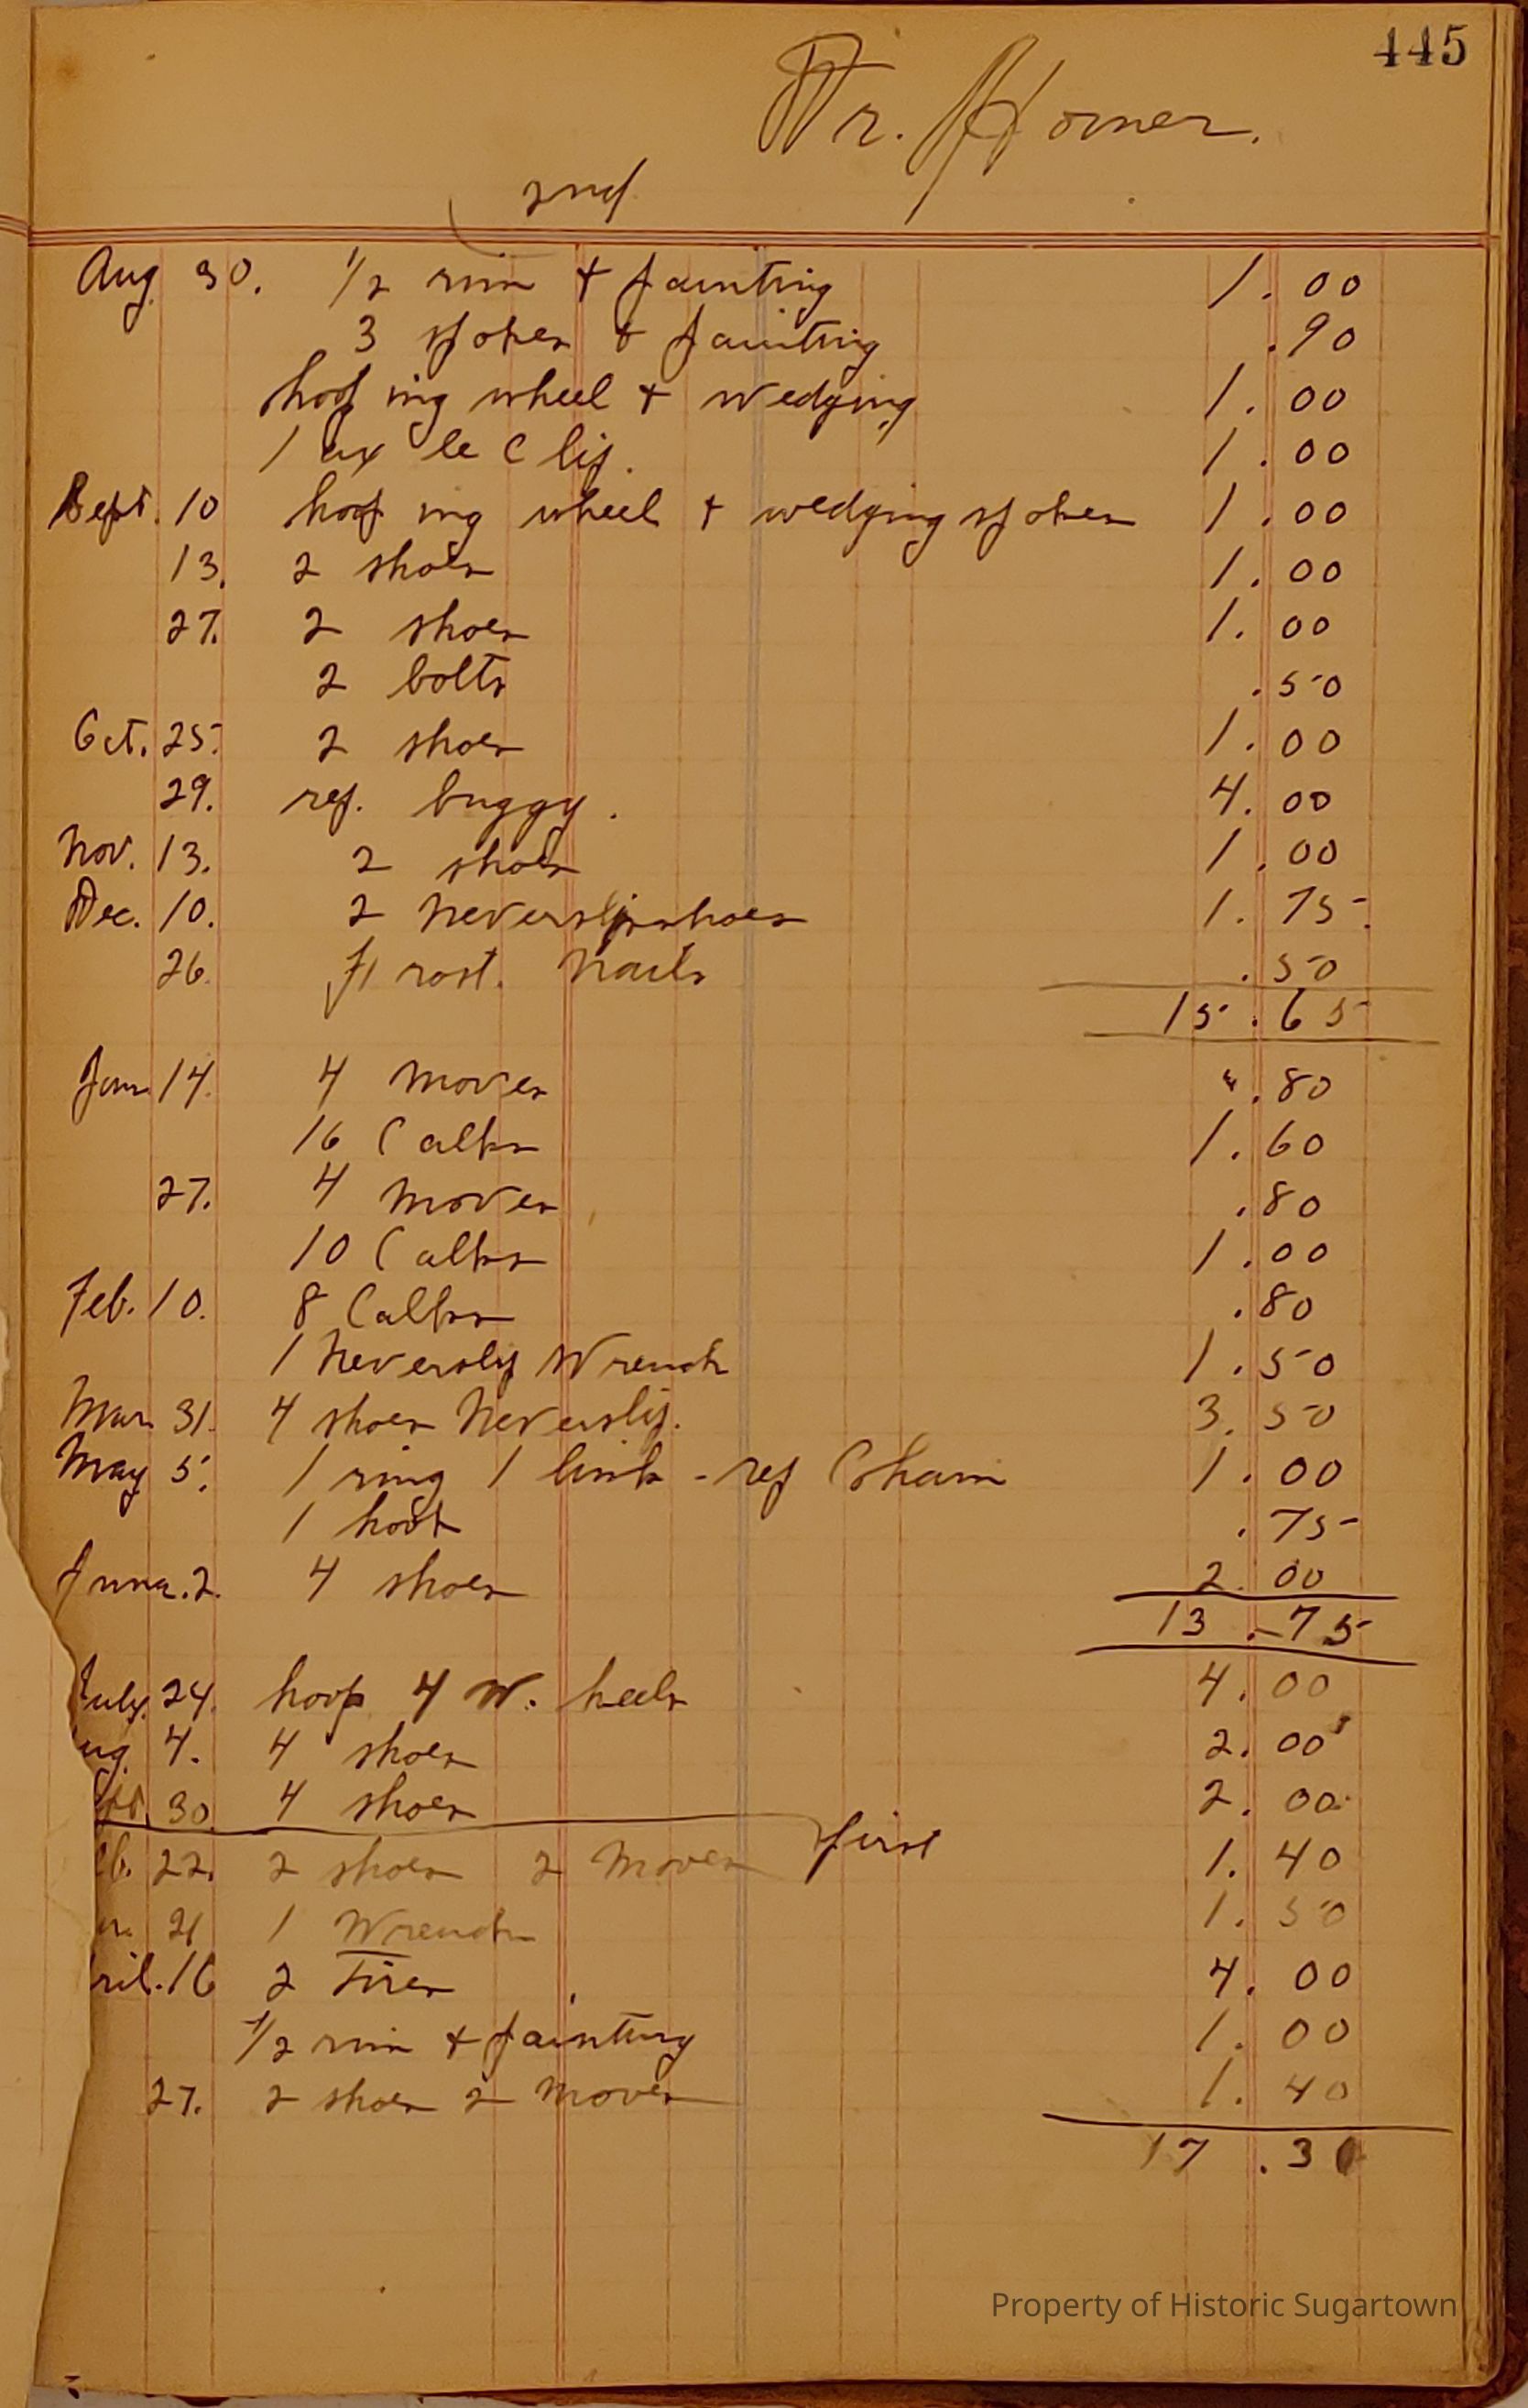 445
Dr. Horner.
2nd
Aug. 30. 1/2 rim + painting 1.00
3 spokes + painting .90
hoop ing wheel + wedging 1.00
1 ax le Clip. 1.00
Sept. 10 hoop ing wheel + wedging spokes 1.00
13. 2 shoes 1.00
27. 2 shoes 1.00
2 bolts .50
Oct. 25. 2 shoes 1.00
29. rep. buggy. 4.00
Nov. 13. 2 shoes 1.00
Dec. 10. 2 Neverslip shoes 1.75
26. frost. Nails .50
15.65
Jan 14. 4 Moves .80
16 Calks 1.60
27. 4 Moves .80
10 Calks 1.00
Feb. 10. 8 Calks .80
1 Neverslip Wrench 1.50
Mar. 31. 4 shoes Neverslip. 3.50
May 5. 1 ring 1 link - rep Chain 1.00
1 hook .75
June. 2. 4 shoes 2.00
13.75
July. 24. hoop 4 W. heels 4.00
ug. 4. 4 shoes 2.00
pt. 30. 4 shoes 2.00
first
eb. 22. 2 shoes 2 Moves 1.40
ar. 21 1 Wrench 1.50
ril. 16 2 Tires 4.00
1/2 rim + painting 1.00
27. 2 shoes 2 Moves 1.40
17.30
Property of Historic Sugartown